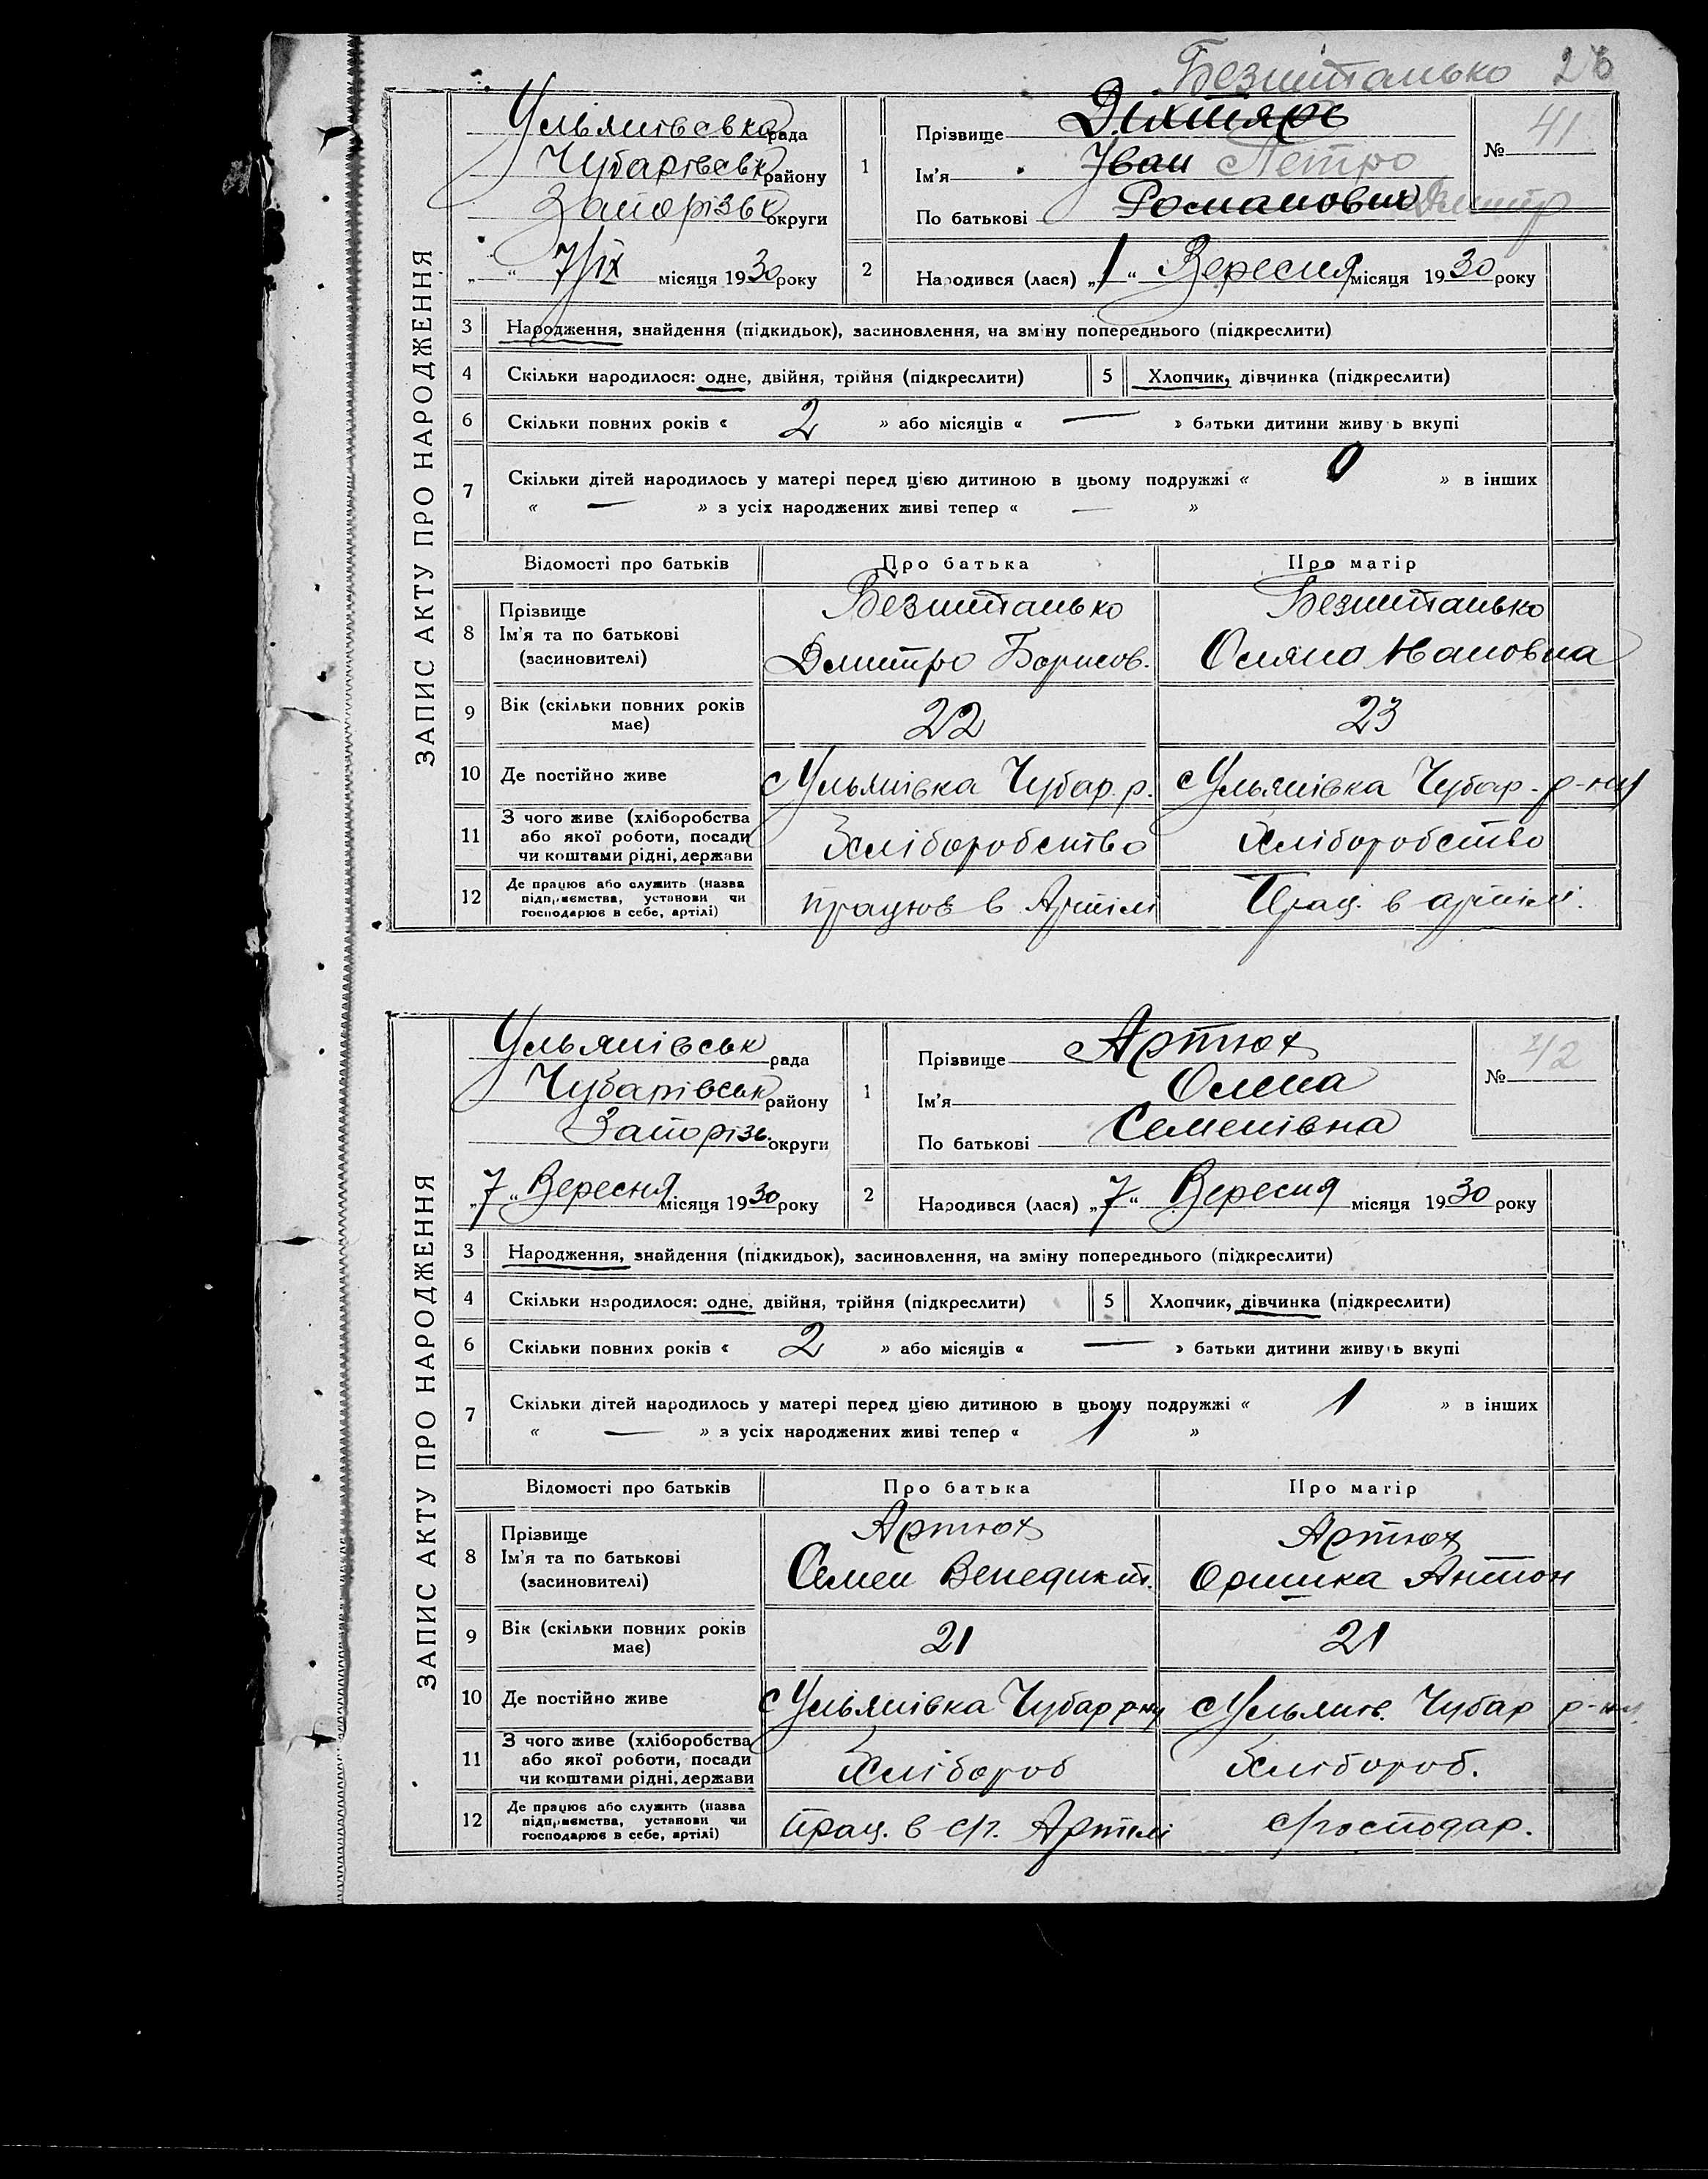 Безштанько 26
ЗАПИС АКТУ ПРО НАРОДЖЕННЯ
Ульянівська рада
Чубарівськ району
Запорізьк округи
„ “ 7/ІХ місяця 1930 року
1 Прізвище Діхтярь
Ім'я Іван Петро
По батькові Романович Дмитр
№ 41
2 Народився (лася) „1“ Вересня місяця 1930 року
3 Народження, знайдення (підкидьок), засиновлення, на зміну попереднього (підкреслити)
4 Скільки народилося: одне, двійня, трійня (підкреслити) 5 Хлопчик, дівчинка (підкреслити)
6 Скільки повних років « 2 » або місяців « — » батьки дитини живуть вкупі
7 Скільки дітей народилось у матері перед цією дитиною в цьому подружжі « 0 » в інших
« — » з усіх народжених живі тепер « — »
Відомості про батьків Про батька Про матір
8 Прізвище Безштанько Безштанько
Ім'я та по батькові Дмитро Борисов. Івановна
(засиновителі)
9 Вік (скільки повних років має) 22 23
10 Де постійно живе с Ульянівка Чубар. р. с Ульянівка Чубар. р-ну
11 З чого живе (хліборобства
або якої роботи, посади Хліборобство Хліборобство
чи коштами рідні, держави
12 Де працює або служить (назва
підприємства, установи чи працює в Артілі Прац. в артілі.
господарює в себе, артілі)
ЗАПИС АКТУ ПРО НАРОДЖЕННЯ
Ульянівськ рада
Чубарівськ району
Запорізь. округи
„7“ Вересня місяця 1930 року
1 Прізвище Артюх
Ім'я Олена
По батькові Семенівна
№ 42
2 Народився (лася) „7“ Вересня місяця 1930 року
3 Народження, знайдення (підкидьок), засиновлення, на зміну попереднього (підкреслити)
4 Скільки народилося: одне, двійня, трійня (підкреслити) 5 Хлопчик, дівчинка (підкреслити)
6 Скільки повних років « 2 » або місяців « — » батьки дитини живуть вкупі
7 Скільки дітей народилось у матері перед цією дитиною в цьому подружжі « 1 » в інших
« — » з усіх народжених живі тепер « 1 »
Відомості про батьків Про батька Про матір
8 Прізвище Артюх Артюх
Ім'я та по батькові Семен Венедикт. Оришка Антон
(засиновителі)
9 Вік (скільки повних років має) 21 21
10 Де постійно живе с Ульянівка Чубар р-ну с Ульянів. Чубар р-ну.
11 З чого живе (хліборобства
або якої роботи, посади Хлібороб Хлібороб.
чи коштами рідні, держави
12 Де працює або служить (назва
підприємства, установи чи Прац. в с/г. Артілі с/господар.
господарює в себе, артілі)